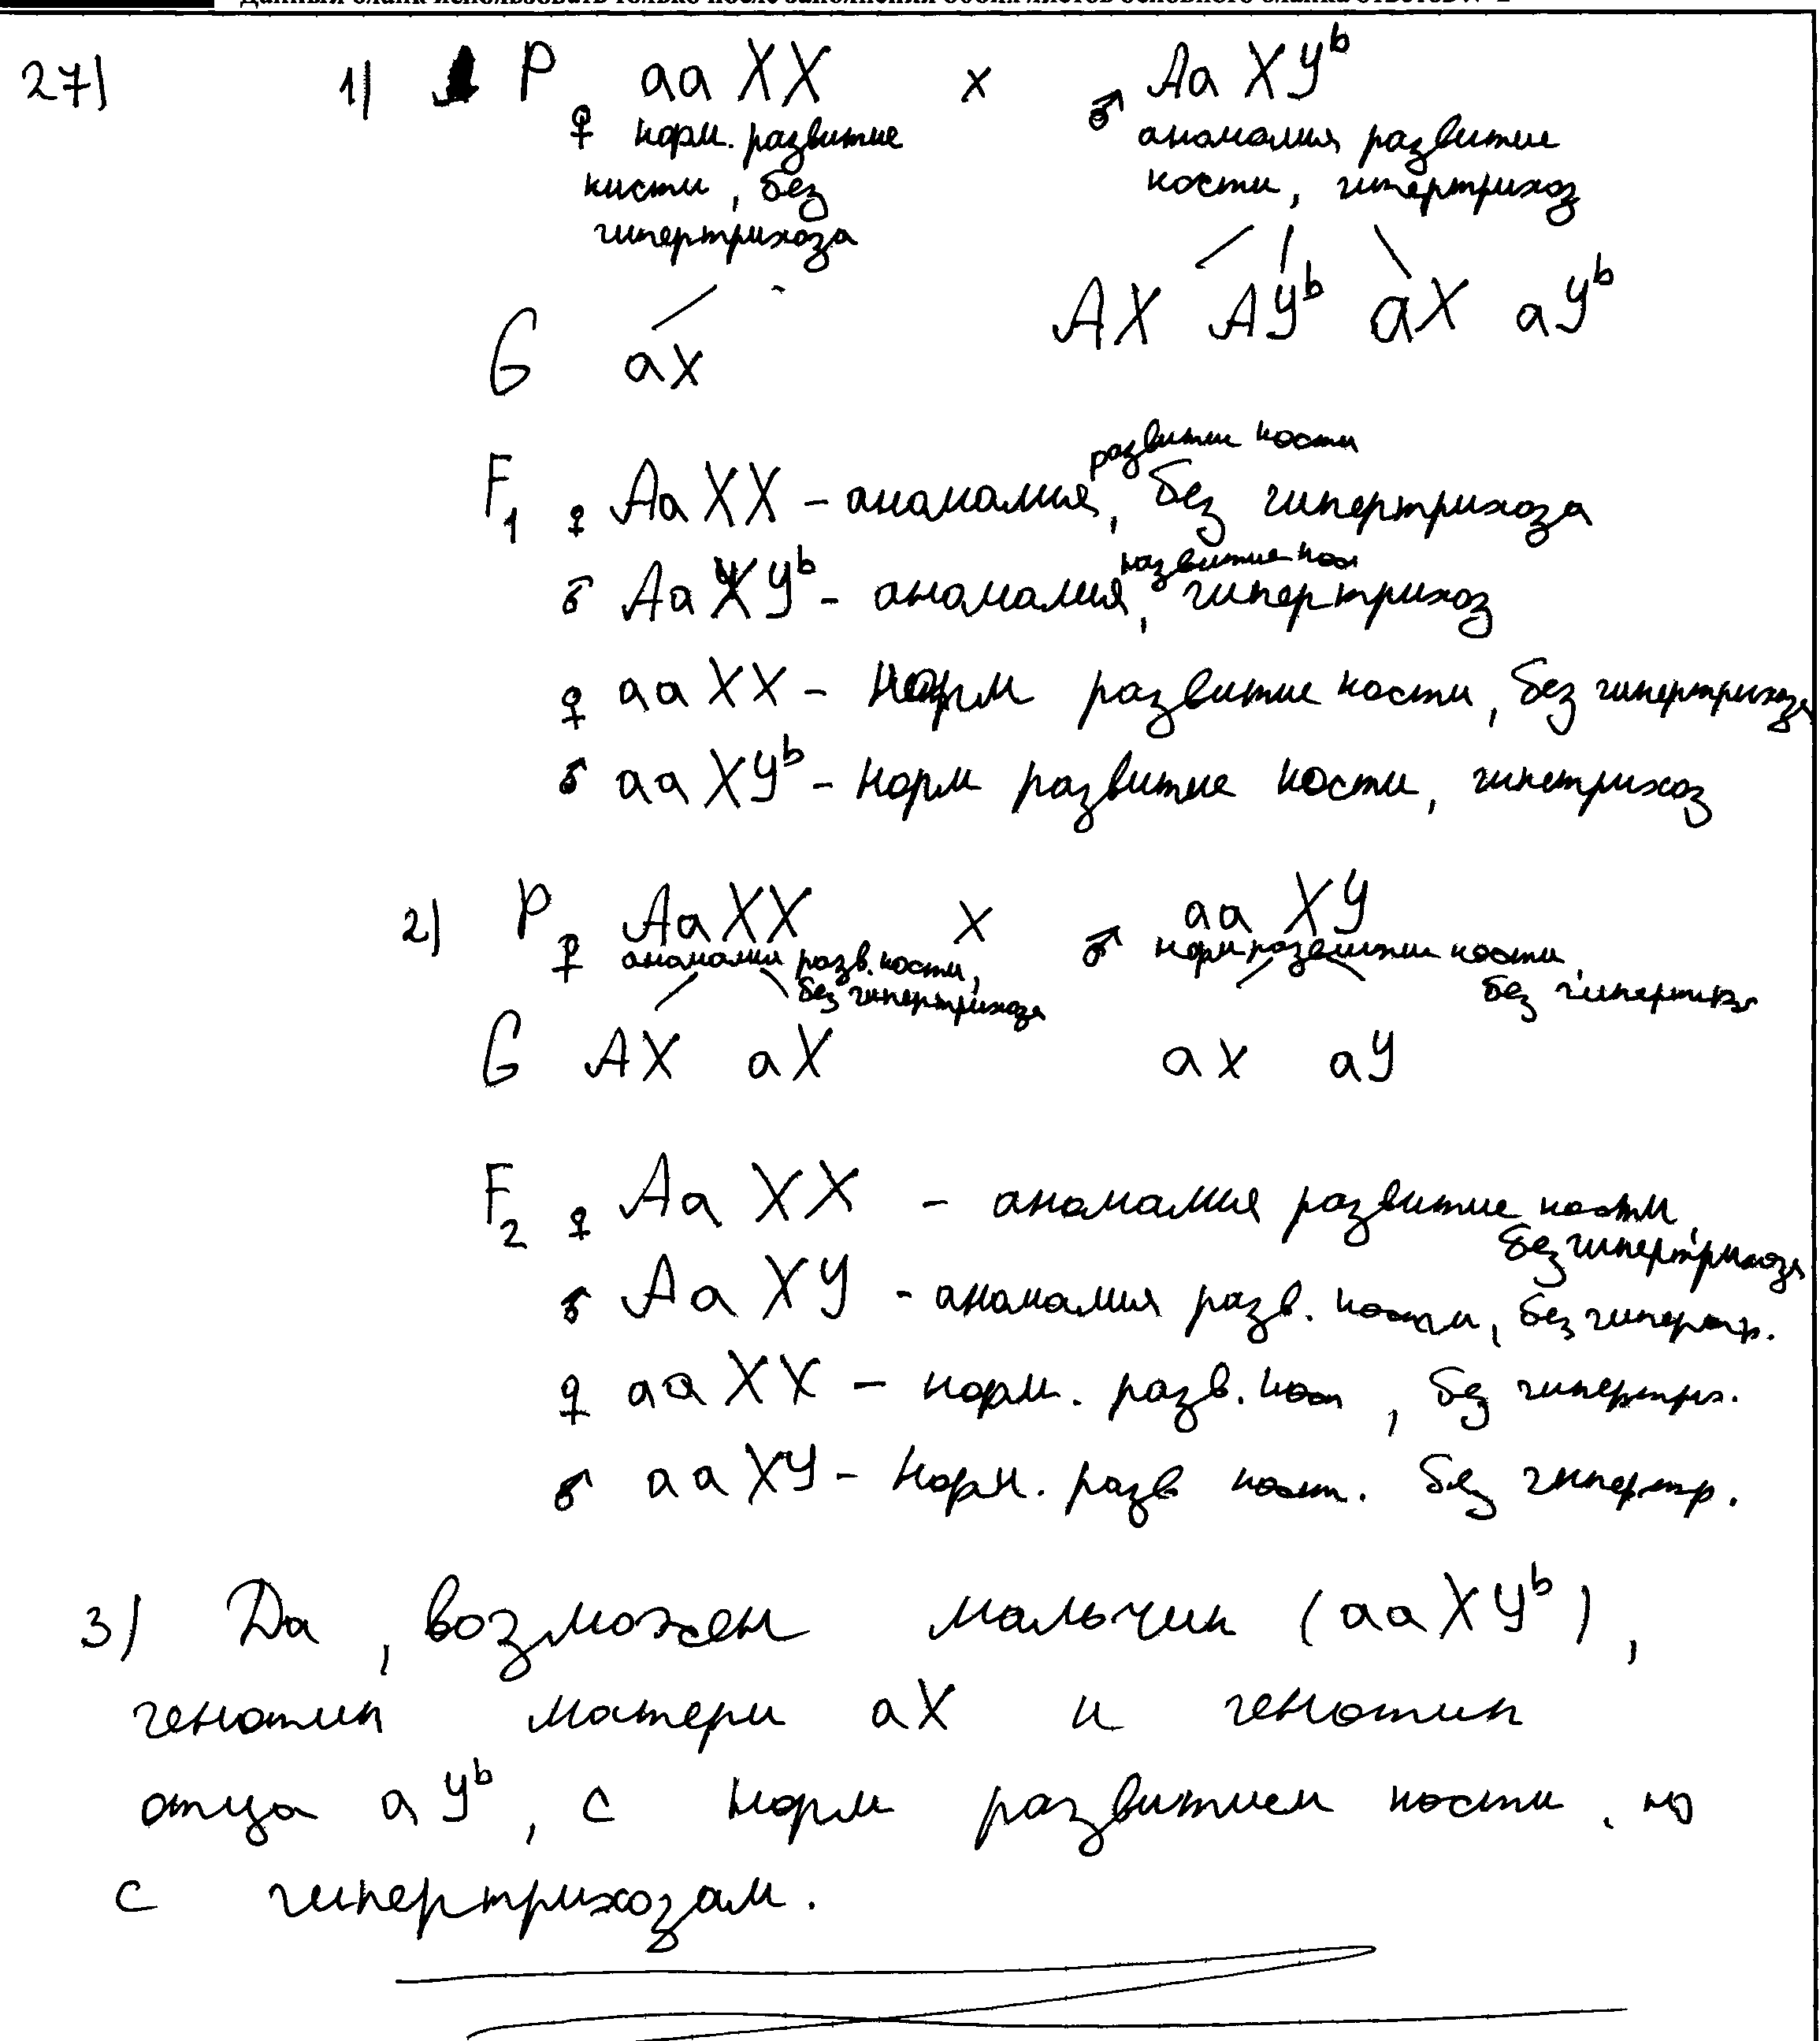 Данный бланк использовать только после заполнения обоих листов основного бланка ответов № 2
27) 1) P ♀ aa XX x ♂ Aa XY^b
норм. развитие кисти, без гипертрихоза
аномалия развитие кости, гипертрихоз
G aX AX AY^b aX aY^b
F1 ♀ Aa XX – аномалия развитие кости, без гипертрихоза
♂ Aa XY^b – аномалия, гипертрихоз
♀ aa XX – норм развитие кости, без гипертрихоза
♂ aa XY^b – норм развитие кости, гипетрихоз
2) P ♀ Aa XX x ♂ aa XY
аномалия разв. кости, без гипертрихоза
норм развитие кости, без
G AX aX aX aY
F2 ♀ Aa XX – аномалия развитие кости, без гипертрихоза
♂ Aa XY – аномалия разв. кости, без гипертр.
♀ aa XX – норм. разв. кос, без гипертрих.
♂ aa XY – Норм. разв кост. без гипертр.
3) Да, возможен мальчик (aa XY^b),
генотип матери aX и генотип
отца aY^b, с норм развитием кости, но
с гипертрихозам.